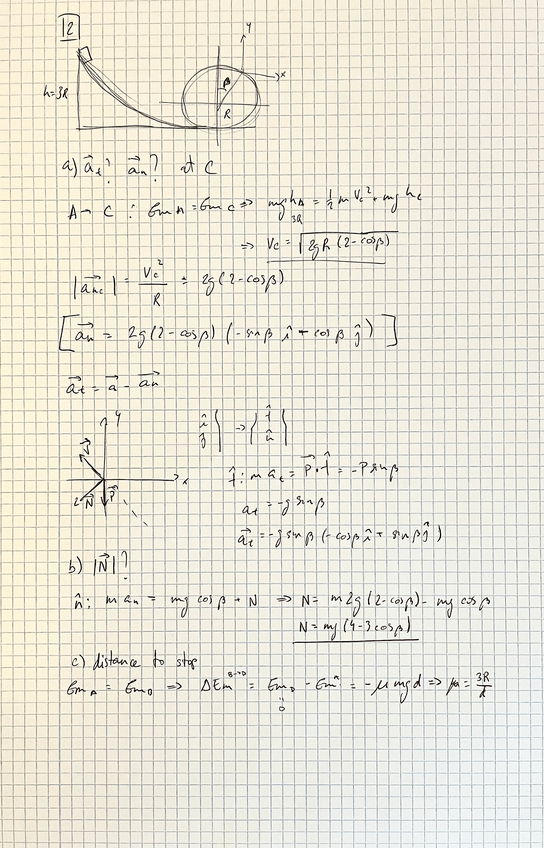 12
y
h=3R
β
x
R
a) a⃗t? a⃗n? at C
A→C : EmA = EmC ⇒ mghA = ½mVc² + mghc
3R
⇒ Vc = √(2gR(2-cosβ))
|a⃗nc| = Vc²/R = 2g(2-cosβ)
[a⃗n = 2g(2-cosβ) (-sinβ î - cosβ ĵ)]
a⃗t = a⃗ - a⃗n
y
î ĵ → t̂ n̂
V⃗
x
N⃗ P⃗
t̂: m at = P⃗·t̂ = -Psinβ
at = -gsinβ
a⃗t = -gsinβ (-cosβ î + sinβ ĵ)
b) |N⃗|?
n̂: man = mg cosβ + N ⇒ N = m2g(2-cosβ) - mg cosβ
N = mg(4-3cosβ)
c) distance to stop
EmA = EmB ⇒ ΔEm B→D = EmD - Em = -μmgd ⇒ μ = 3R/d
0